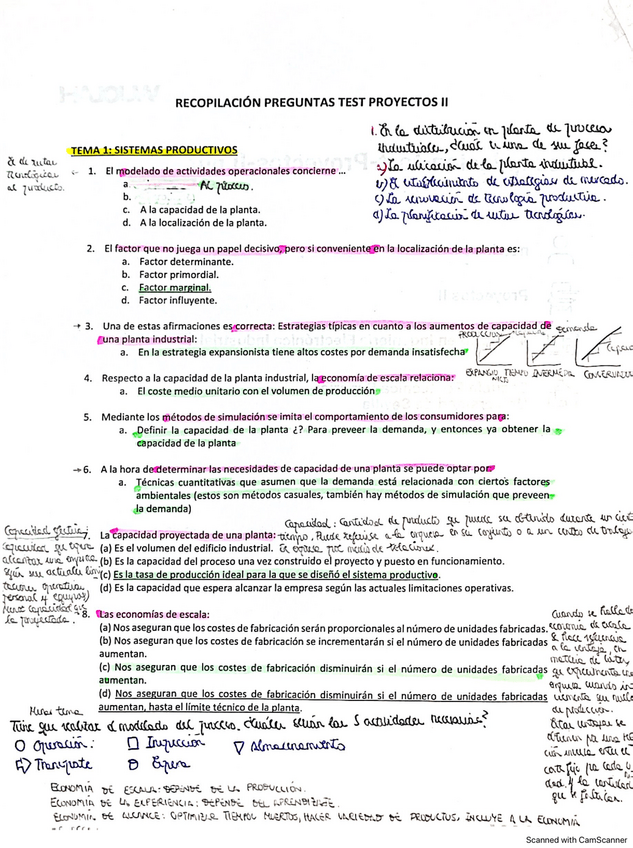 RECOPILACIÓN PREGUNTAS TEST PROYECTOS II
1. En la distribución en planta de procesos
industriales, ¿cuál es una de sus fases?
a) La ubicación de la planta industrial.
b) El establecimiento de estrategias de mercado.
c) La renovación de tecnología productiva.
d) La planificación de rutas tecnológicas.
TEMA 1: SISTEMAS PRODUCTIVOS
de rutas
tecnológicas
al producto.
1. El modelado de actividades operacionales concierne ...
a. Al proceso.
b.
c. A la capacidad de la planta.
d. A la localización de la planta.
2. El factor que no juega un papel decisivo, pero si conveniente en la localización de la planta es:
a. Factor determinante.
b. Factor primordial.
c. Factor marginal.
d. Factor influyente.
3. Una de estas afirmaciones es correcta: Estrategias típicas en cuanto a los aumentos de capacidad de
una planta industrial:
a. En la estrategia expansionista tiene altos costes por demanda insatisfecha
demanda
4. Respecto a la capacidad de la planta industrial, la economía de escala relaciona:
a. El coste medio unitario con el volumen de producción
5. Mediante los métodos de simulación se imita el comportamiento de los consumidores para:
a. Definir la capacidad de la planta ¿? Para preveer la demanda, y entonces ya obtener la
capacidad de la planta
6. A la hora de determinar las necesidades de capacidad de una planta se puede optar por
a. Técnicas cuantitativas que asumen que la demanda está relacionada con ciertos factores
ambientales (estos son métodos casuales, también hay métodos de simulación que preveen
la demanda)
Capacidad: Cantidad de producto que puede ser obtenido durante un
tiempo. Puede referirse a la empresa en su conjunto o a un centro de trabajo
7. La capacidad proyectada de una planta:
(a) Es el volumen del edificio industrial.
(b) Es la capacidad del proceso una vez construido el proyecto y puesto en funcionamiento.
(c) Es la tasa de producción ideal para la que se diseñó el sistema productivo.
(d) Es la capacidad que espera alcanzar la empresa según las actuales limitaciones operativas.
Capacidad efectiva:
capacidad que espera
alcanzar una empresa
según sus actuales
operativas
personal y equipos)
la proyectada.
8. Las economías de escala:
(a) Nos aseguran que los costes de fabricación serán proporcionales al número de unidades fabricadas.
(b) Nos aseguran que los costes de fabricación se incrementarán si el número de unidades fabricadas
aumentan.
(c) Nos aseguran que los costes de fabricación disminuirán si el número de unidades fabricadas
aumentan.
(d) Nos aseguran que los costes de fabricación disminuirán si el número de unidades fabricadas
aumentan, hasta el límite técnico de la planta.
Cuando se habla de
economía de escala
se hace referencia
a la ventaja, en
materia de
de producción.
Estas ventajas se
Mismo tema
Tiene que realizar el modelado del proceso. ¿Cuáles serían las 5 actividades necesarias?
Operación.
Inspección
Almacenamiento
Transporte
Espera
ECONOMÍA DE ESCALA: DEPENDE DE LA PRODUCCIÓN.
ECONOMÍA DE LA EXPERIENCIA: DEPENDE DEL APRENDIZAJE.
ECONOMÍA DE ALCANCE: OPTIMIZAR TIEMPOS MUERTOS, HACER VARIEDAD DE PRODUCTOS, INCLUYE A LA ECONOMÍA
Scanned with CamScanner